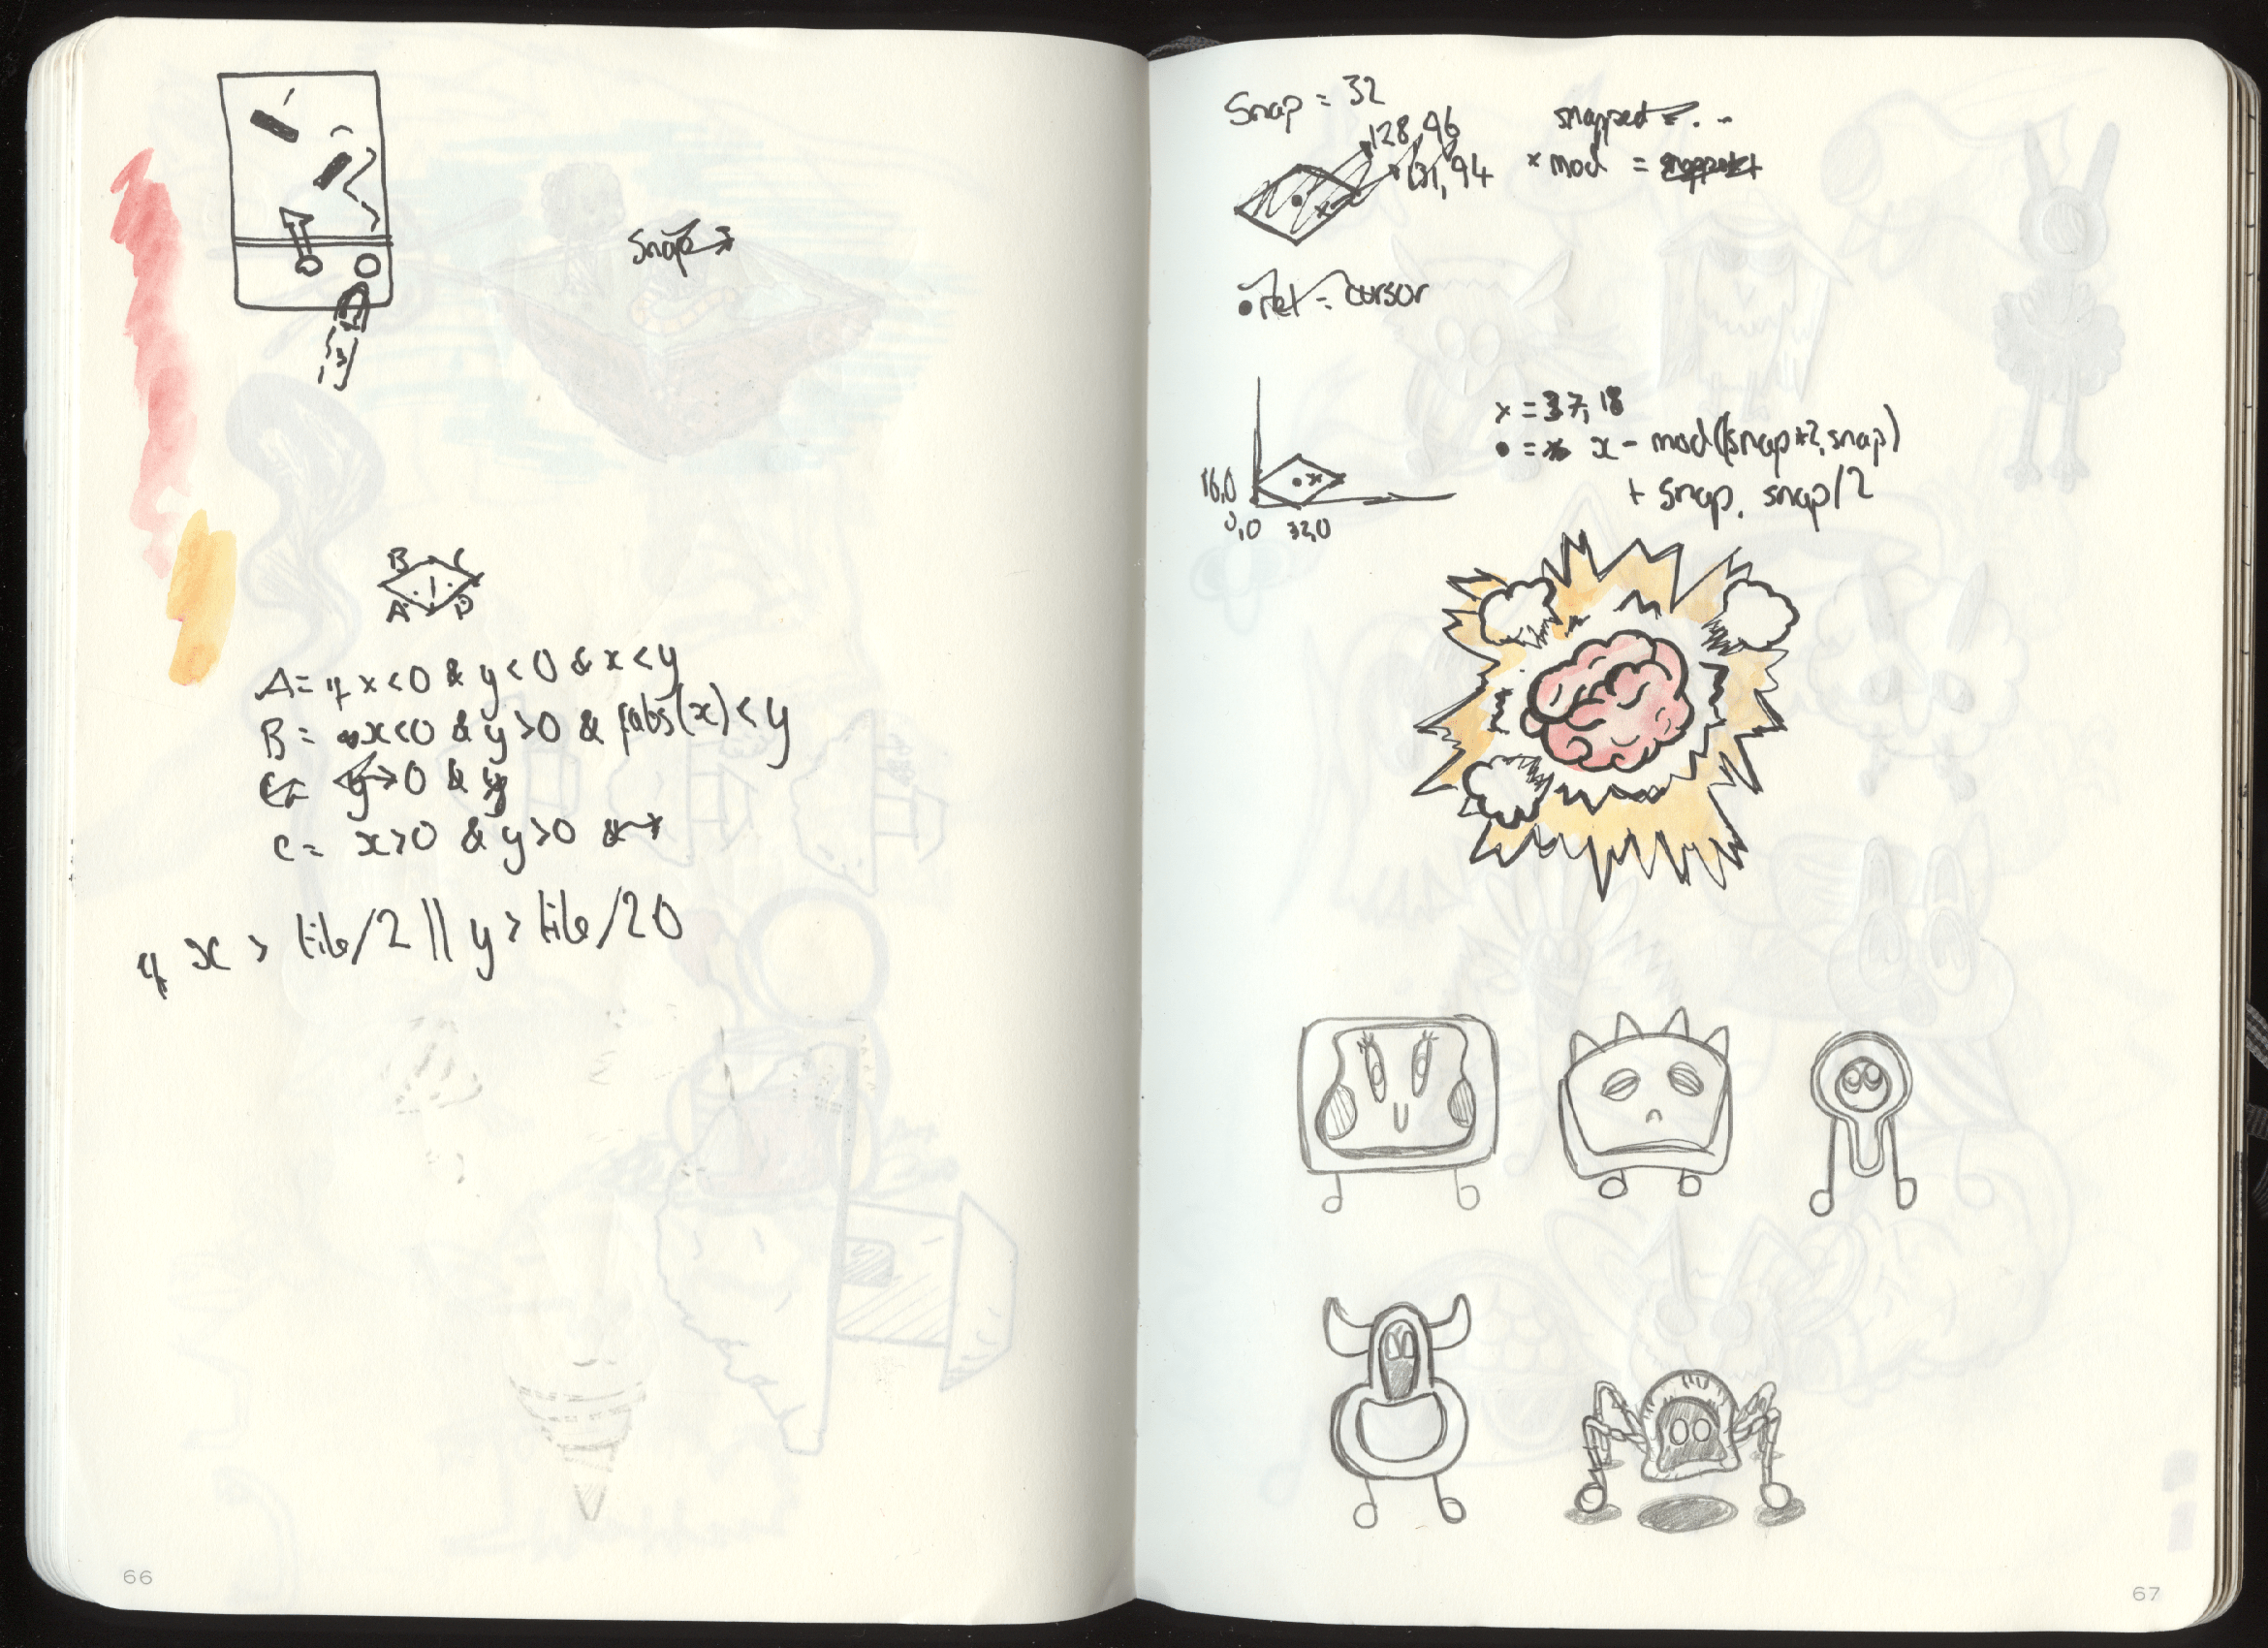 Snap
B C
A D
A = if x < 0 & y < 0 & x < y
B = x < 0 & y > 0 & fabs(x) < y
C = y > 0 & y
C = x > 0 & y > 0 &
if x > tile/2 || y > tile/20
66
Snap = 32
128, 96
131, 94
snapped = . . .
x mod = snapped
• rel = cursor
x = 37, 18
• = x - mod(snap*2, snap)
+ snap, snap/2
16,0
0,0 32,0
67